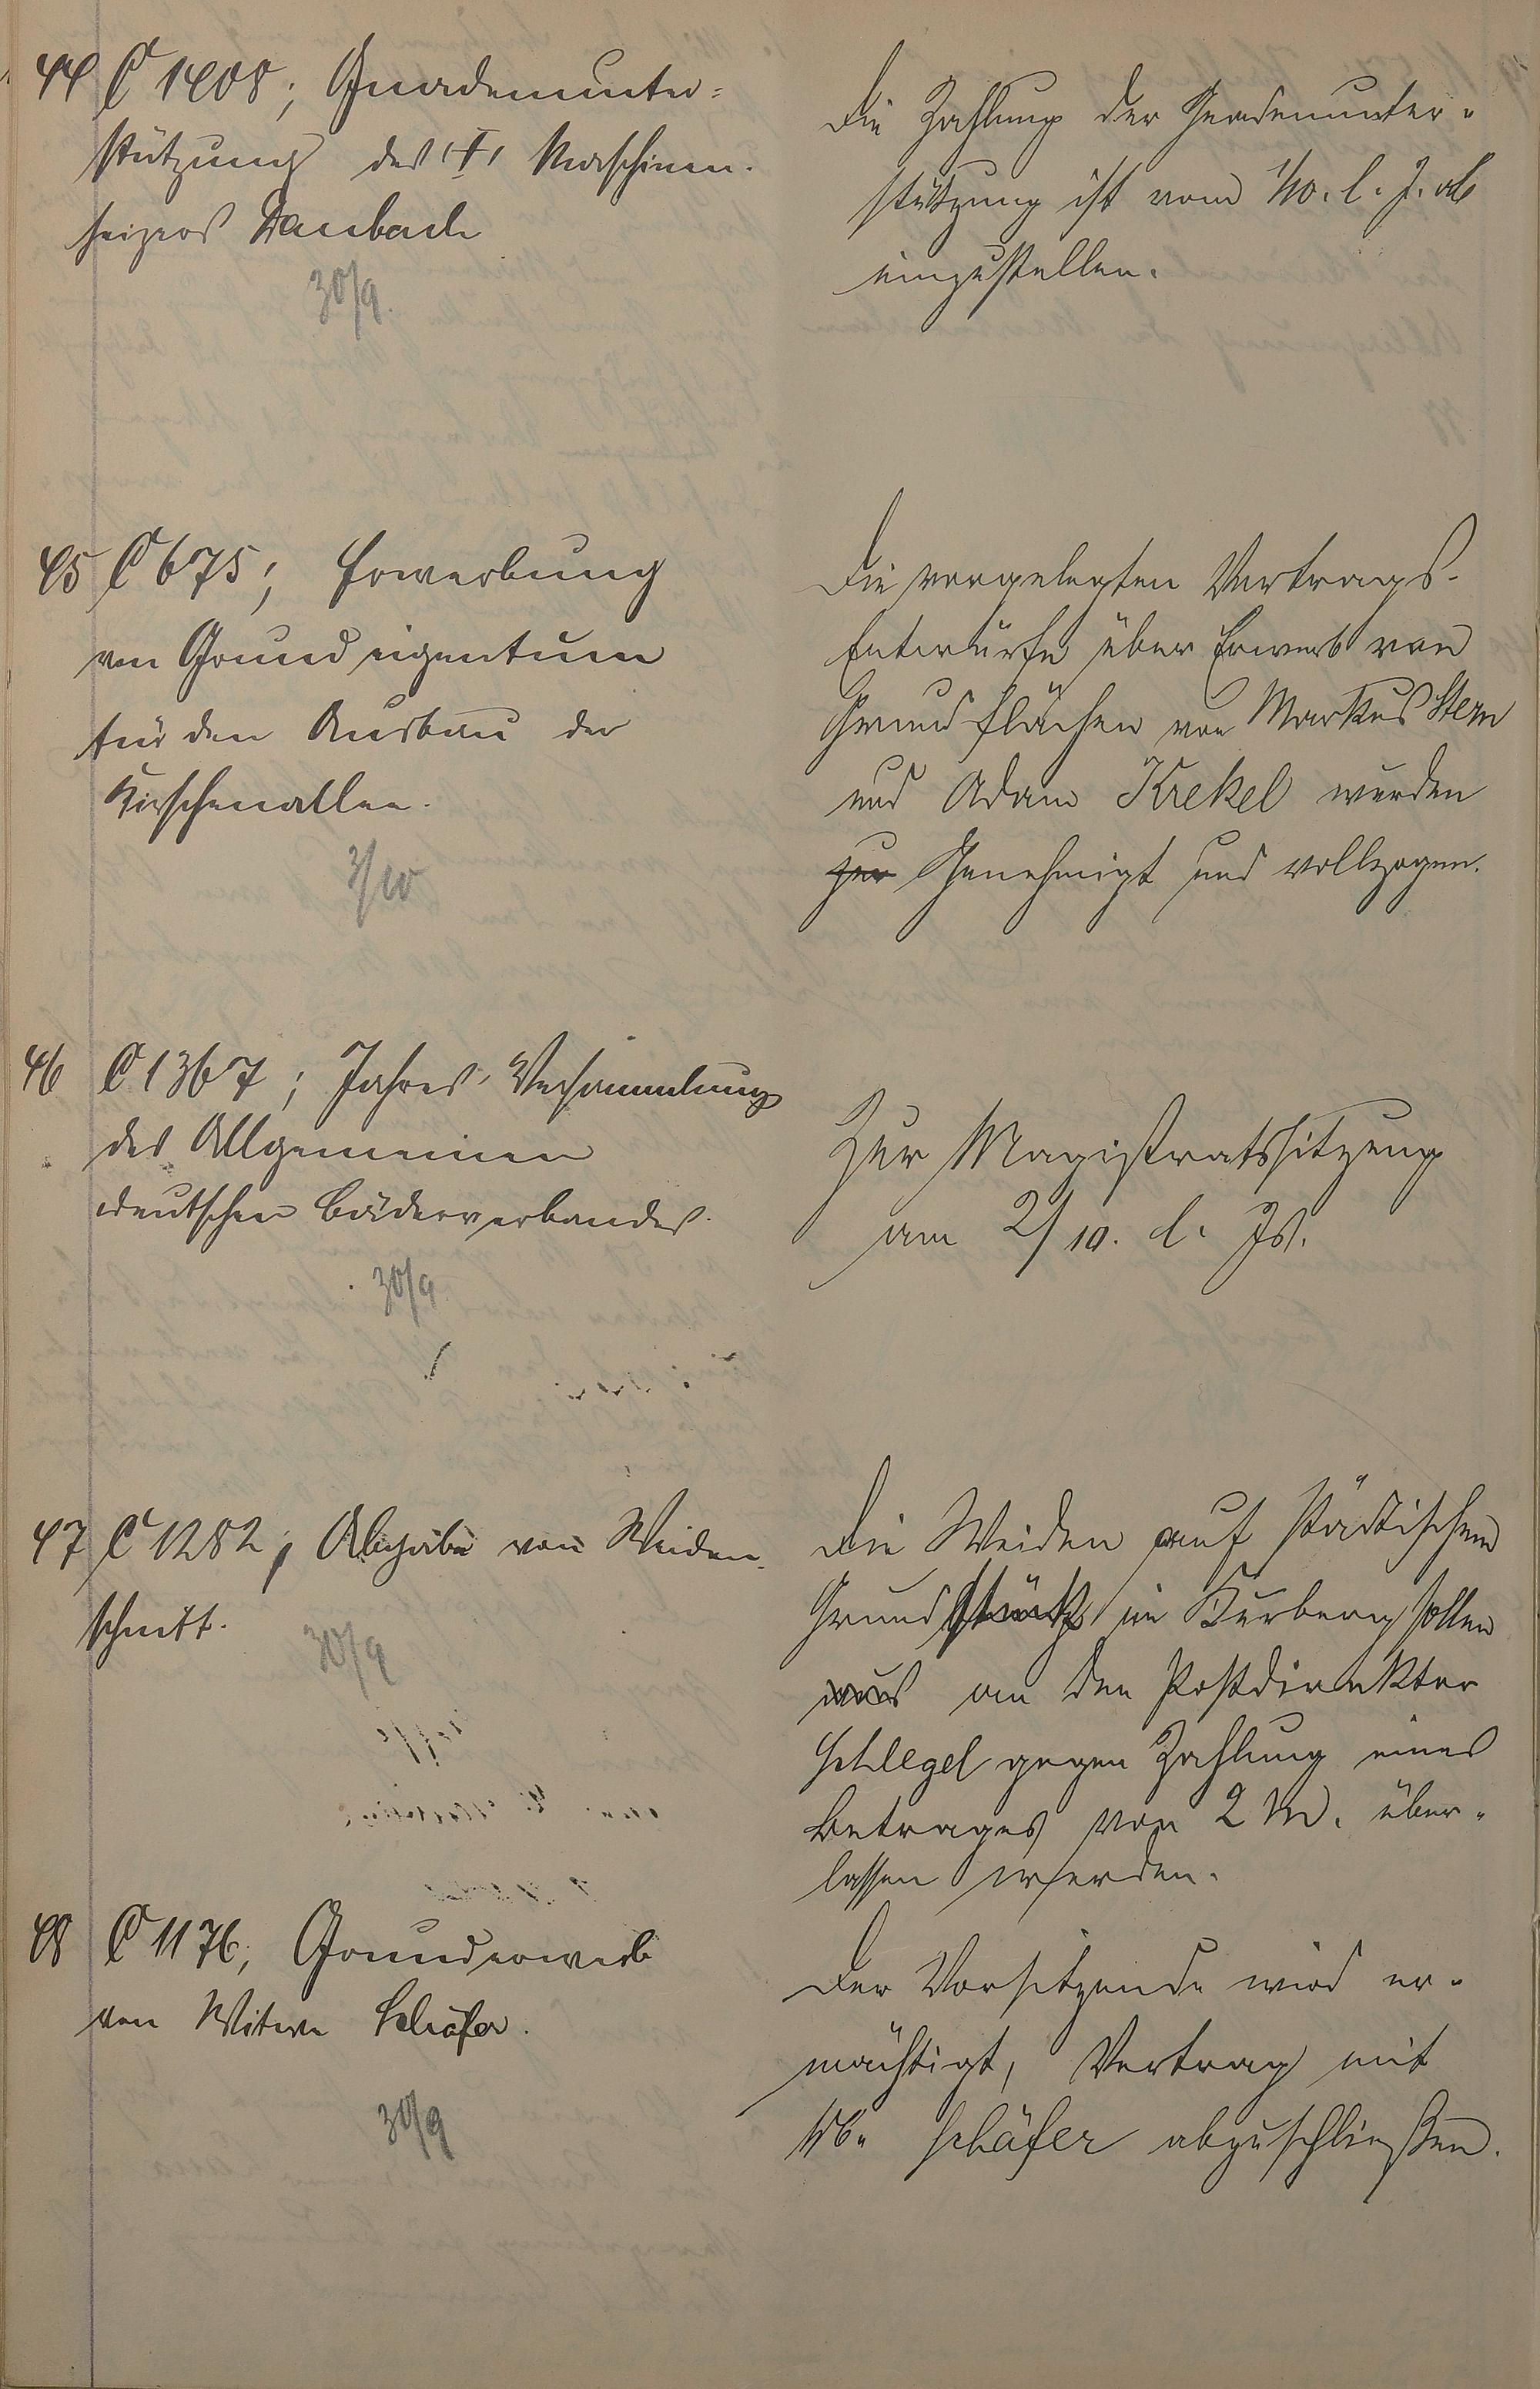 44 C 1408; Gnadenunter=
stützung des (†) Maschinen-
heizers Daubach
30/9.
Die Zahlung der Gnadenunter-
stützung ist vom 1/10. l. J. ab
einzustellen.
45 C 675; Erwerbung
von Grundeigentum
für den Ausbau der
Kirschenallee.
3/10
Die vorgelegten Vertrags-
Entwürfe über Erwerb von
Grundflächen von Markus Stern
und Adam Krekel werden
zur Genehmigt und vollzogen.
46 C 1367; Jahres-Versammlung
des Allgemeinen
deutschen Bäderverbandes.
30/9
Zur Magistratssitzung
am 2/10. l. Js.
47 C 1282; Abgabe von Weiden-
schnitt.
30/9
Die Weiden auf städtischem
Grundstück im Kurberg sollen
an den Postdirektor
Schlegel gegen Zahlung eines
Betrages von 2 M. über-
lassen werden.
48 C 1176; Grunderwerb
von Witwe Schäfer.
30/9
Der Vorsitzende wird er-
mächtigt, Vertrag mit
Wb. Schäfer abzuschließen.